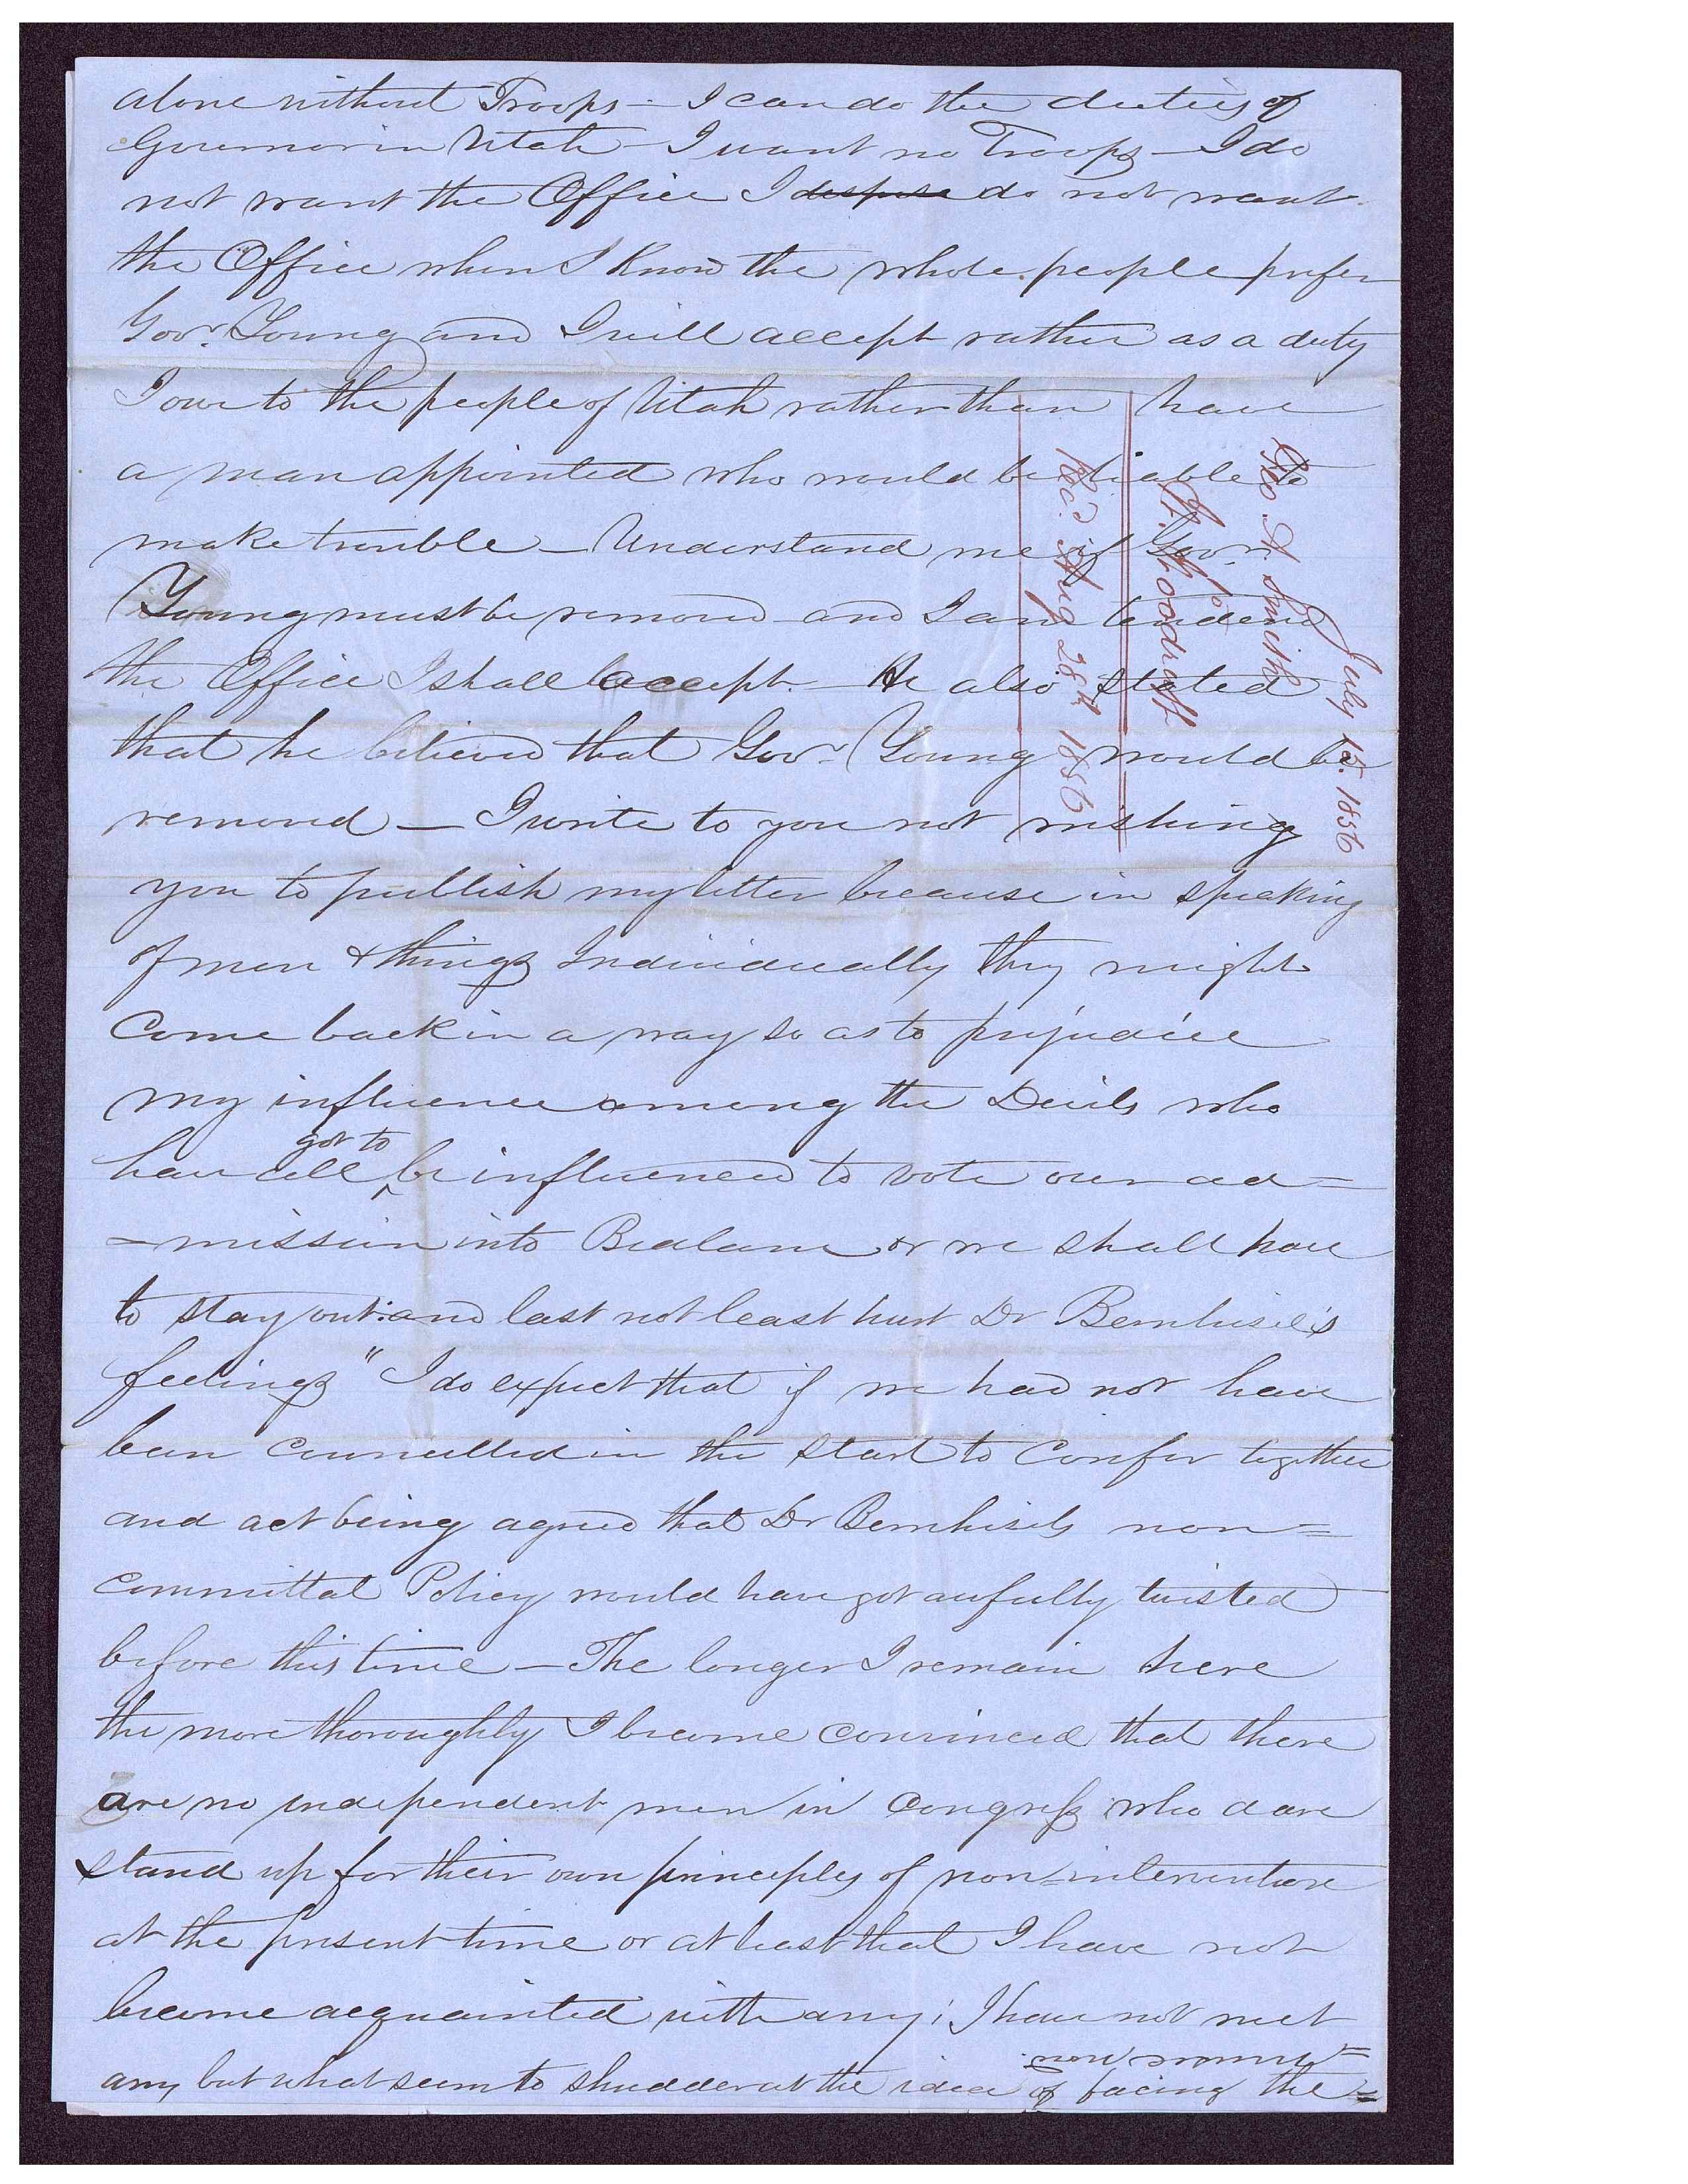 alone without Troops - I can do the duties of
Governor in Utah - I want no Troops - I do
not want the Office I despise do not want
the Office when I know the whole people prefer
Govr. Young and I will accept rather as a duty
I owe to the people of Utah rather than have
a man appointed who would be liable to
make trouble - Understand me if Govr.
Young must be removed and I am tendered
the Office I shall accept. - He also stated
that he believed that Govr. Young would be
removed - I write to you not wishing
you to publish my letter because in speaking
of men & things Individually they might
Come back in a way so as to prejudice
my influence among the Devils who
got to
have all ^ be influenced to vote our ad=
=mission into Bedlam or we shall have
to stay out: and last not least hurt Dr Bernhisel's
feelings" I do expect that if we had not have
been Councilled in the start to Confer together
and act being agreed that Dr Bernhisels non=
Committal Policy would have got awfully twisted
before this time - The longer I remain here
the more thoroughly I become convinced that there
are no independent men in Congress who dare
stand up for their own principles of non=intervention
at the present time or at least that I have not
become acquainted with any; I have not met
any but what seem to shudder at the idea of facing the=
July 15. 1856
Geo. A. Smith
to
W. Woodruff
Rec'd Aug 28th 1856